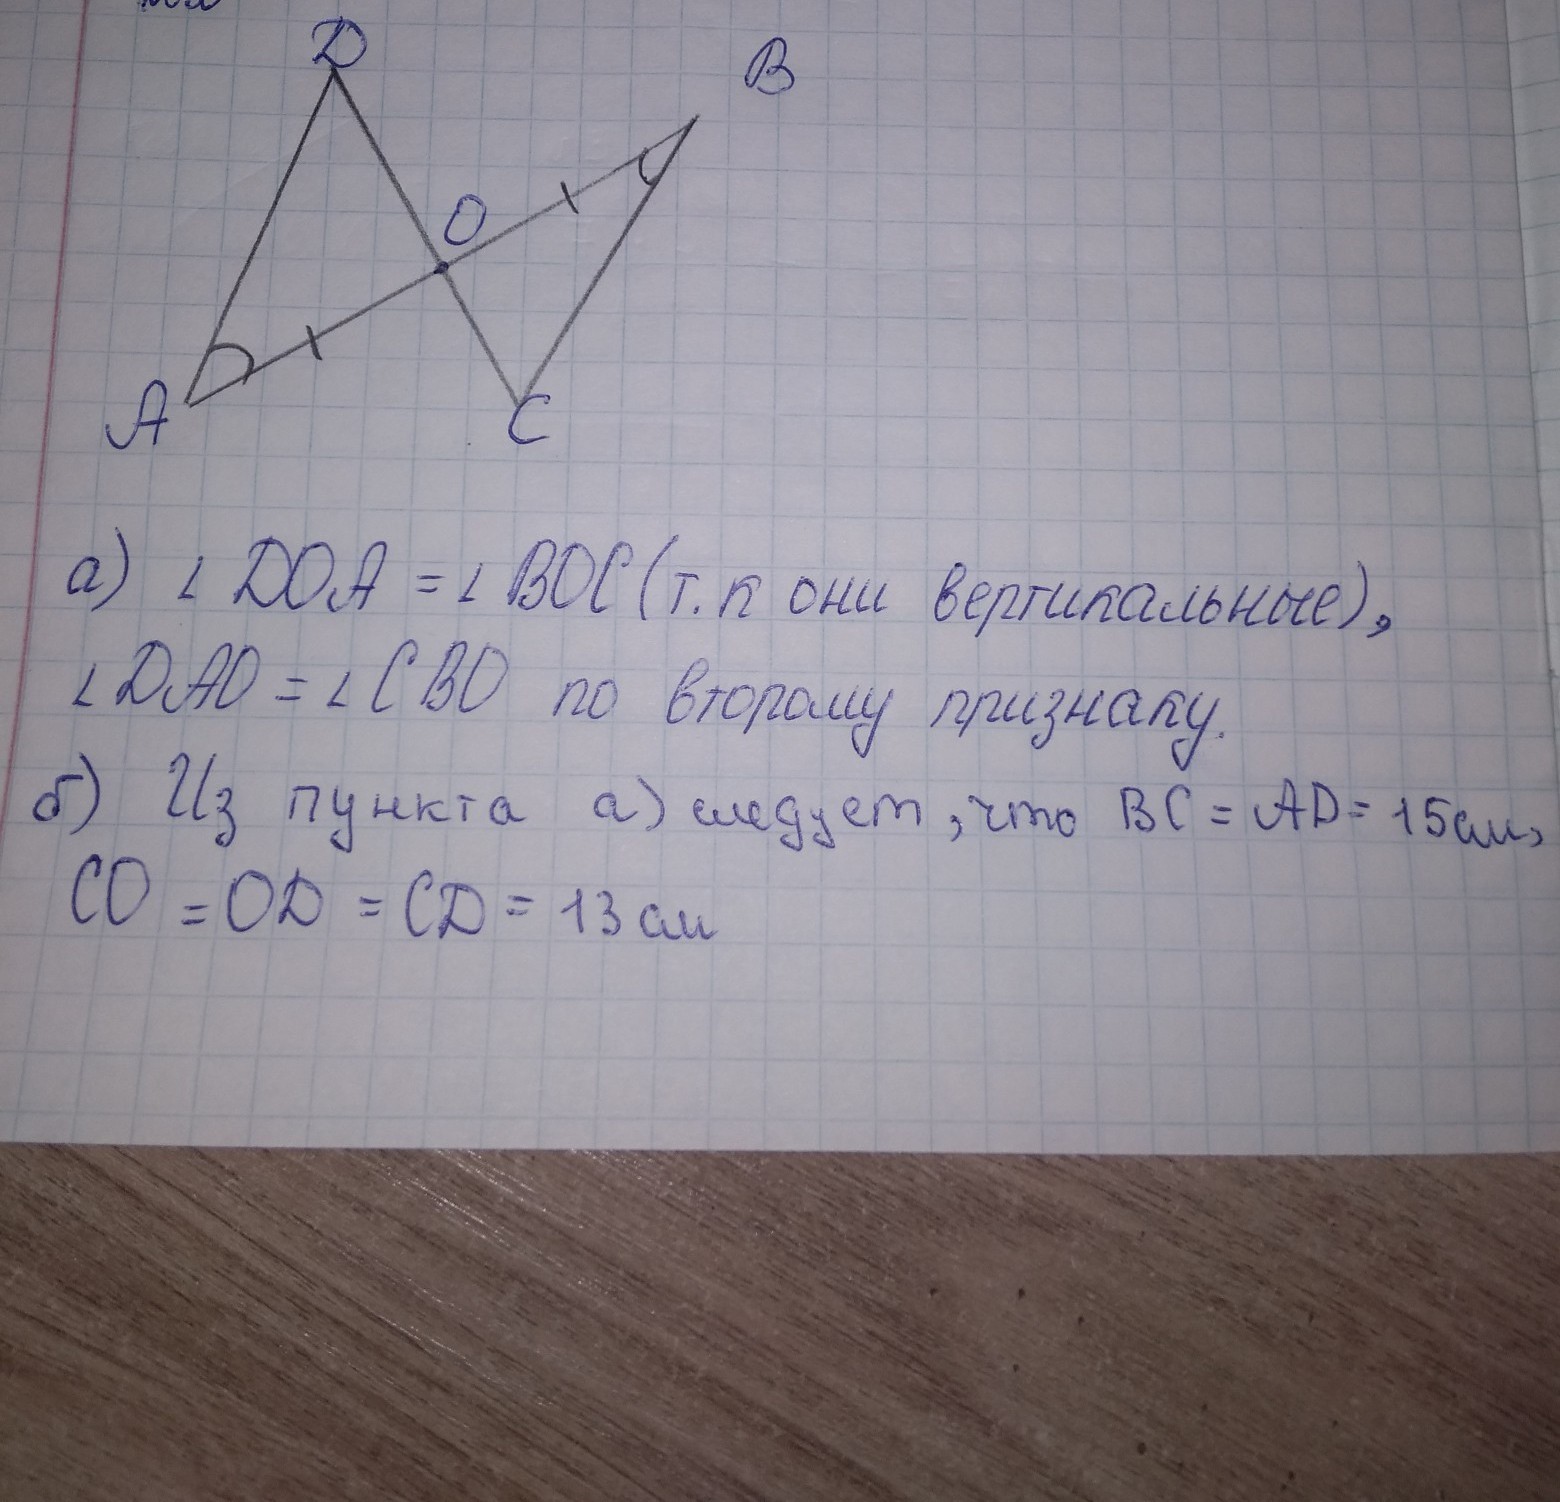 D
B
O
A
C
а) ∠ DOA = ∠ BOC (т.к они вертикальные),
∠ DAO = ∠ CBO по второму признаку.
б) Из пункта а) следует, что BC = AD = 15см,
CO = OD = CD = 13 см